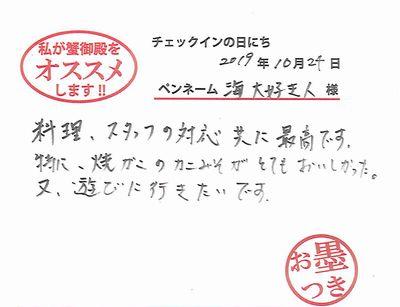 私が蟹御殿を
オススメ
します!!
チェックインの日にち
2019年10月24日
ペンネーム 海大好き人 様
料理、スタッフの対応 共に最高です。
特に、焼がにのカニみそがとてもおいしかった。
又、遊びに行きたいです。
お墨つき